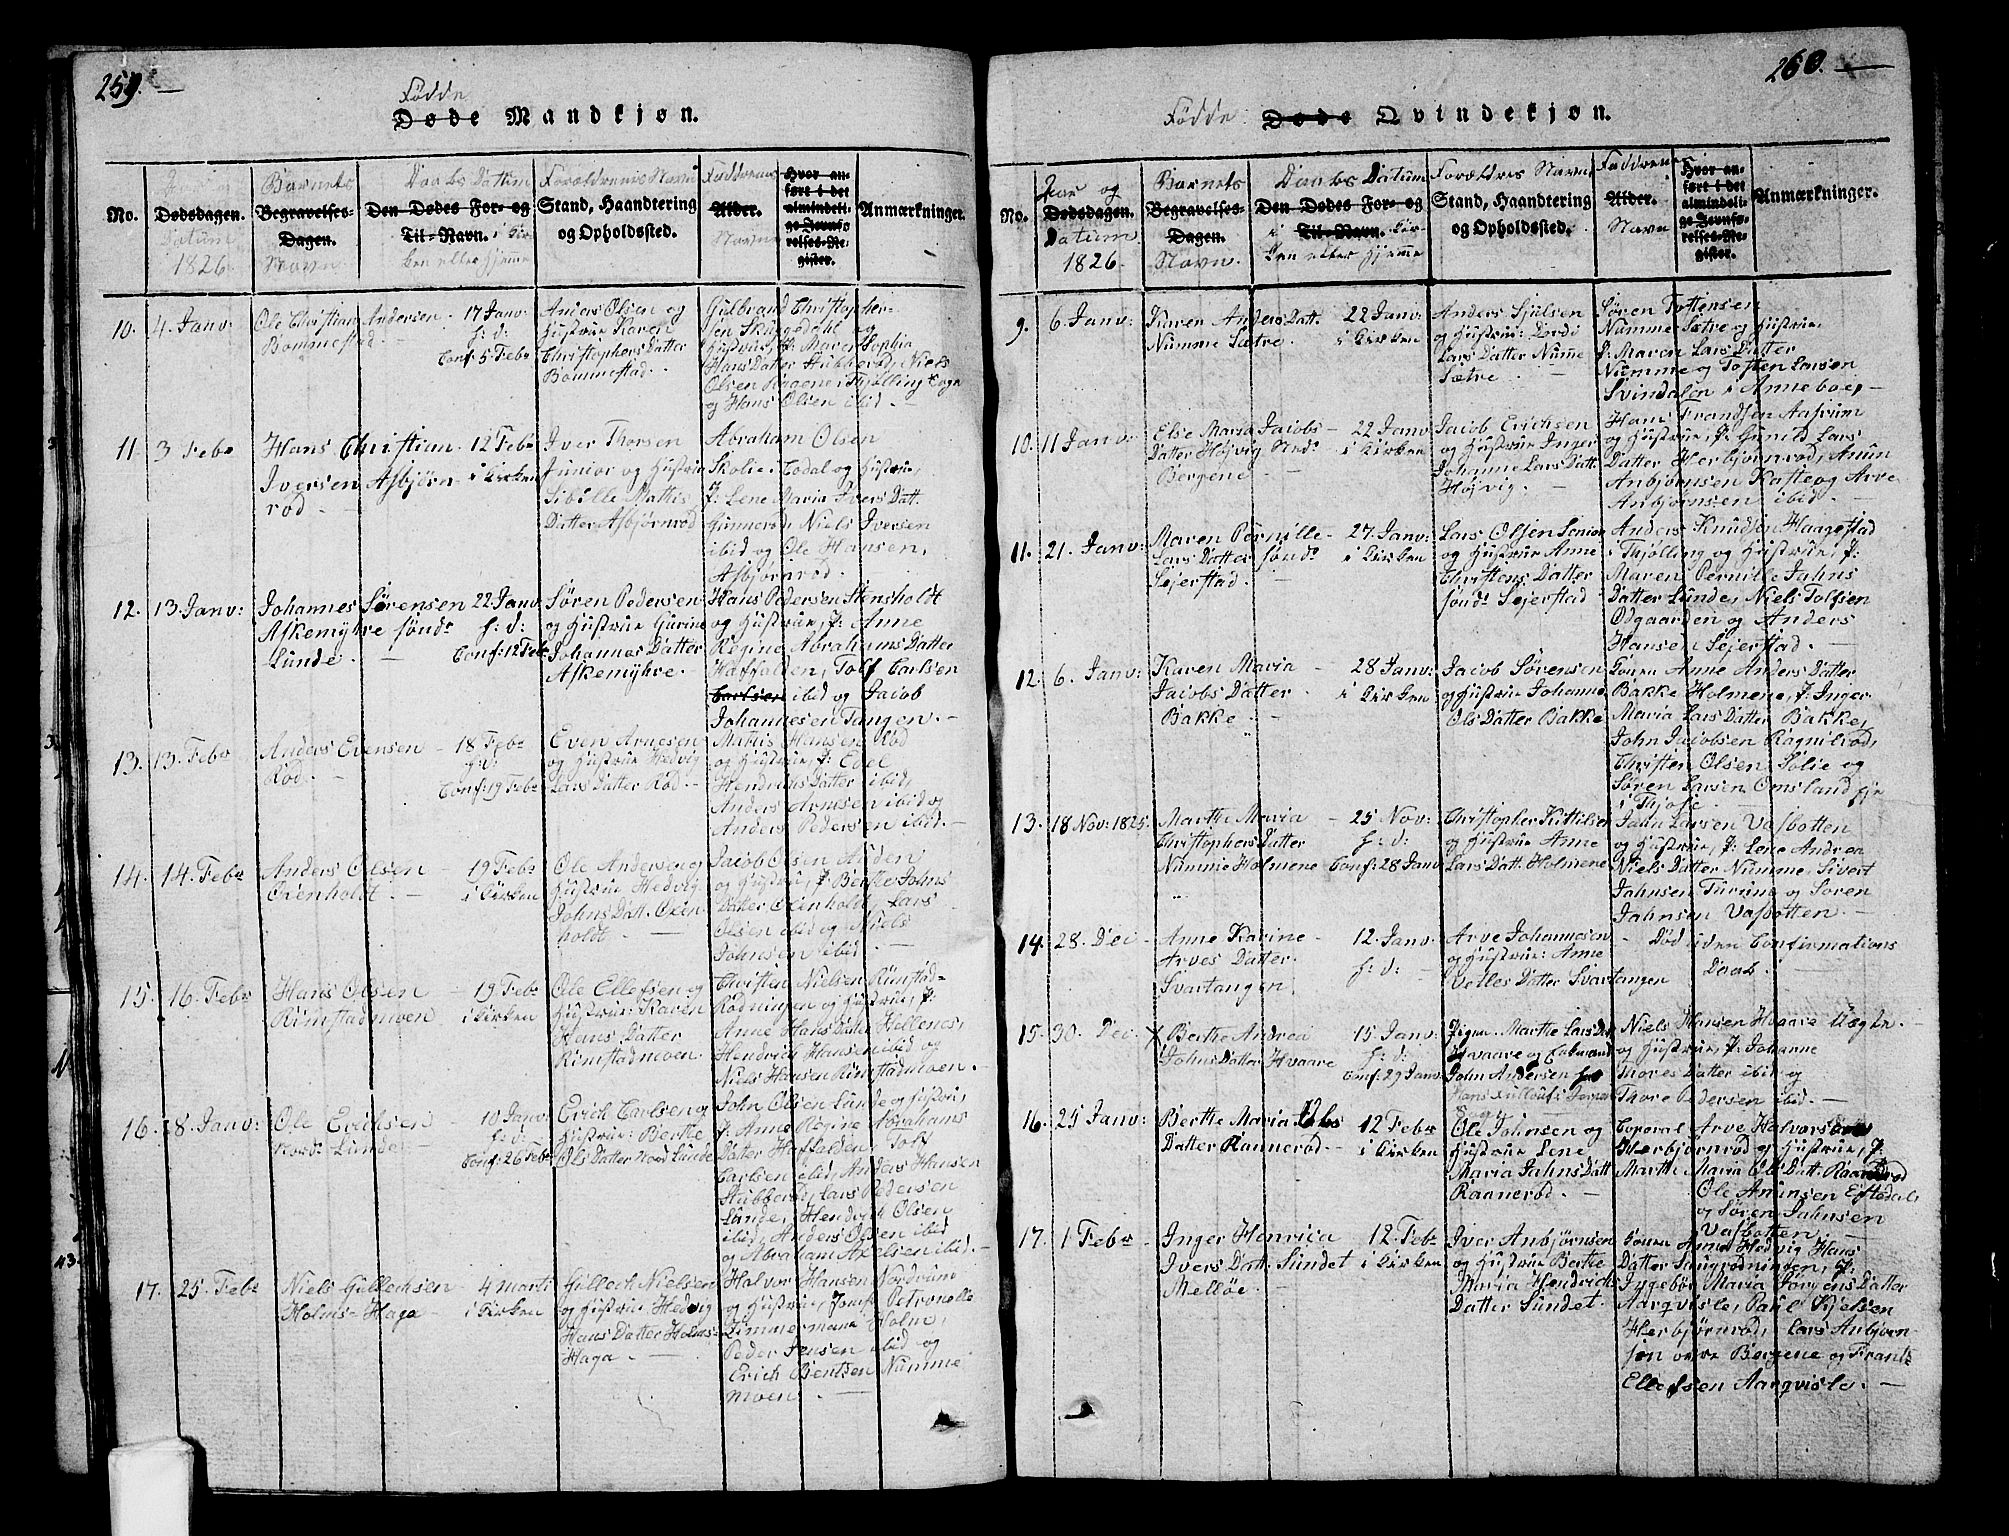 259.
Fødde
Døde Mandkjøn.
No.
Dødsdagen.
Datum
1826
Barnets
Begravelses-
Dagen.
Navn
Daabs Datum
Den Dødes For- og
Til-Navn. i Kir
ken eller hjemme
Forældrenes Navn
Stand, Haandtering
og Opholdssted.
Faddrenes
Alder.
Navne
Hvor an-
ført i det
almindeli-
ge Jevnfø-
relses-Re-
gister.
Anmærkninger.
10. 4. Janv:
Ole Christian Andersen
Bommestad. —
17 Janv:
h: d:
Conf: 5 Febr
Anders Olsen og
Hustrue Karen
Christophers Datter
Bommestad. —
Gulbrand Christopher-
sen Skuggedahl og
Hustrue, J: Maren Sophia
Hans Datter Stubberød, Niels
Olsen Rygene i Thjølling Sogn
og Hans Olsen ibid. —
11. 3 Febr
Hans Christian
Iversen Asbjørn-
rød. —
12 Febr
i Kirken
Iver Thorsen
Junior og Hustrue
Sibille Mattis
Datter Asbjørnrød
Abraham Olsen
Skolie, Eodal og Hustrue,
J: Lene Maria Ivers Datt.
Gunnerød, Niels Iversen
ibid og Ole Hansen,
Asbjørnrød. —
12. 13. Janv:
Johannes Sørensen
Askemyhre søndr
Lunde. —
22 Janv
h: d:
Conf: 12 Febr
Søren Pedersen
og Hustrue Gurine
Johannes Datter
Askemyhre. —
Hans Pedersen Stensholdt
og Hustrue, J: Anne
Regine Abrahams Datter
Haffalden, Tolf Carlsen
Carlsen ibid og Jacob
Johannesen Tangen. —
13. 13. Febr
Anders Evensen
Rød. —
18 Febr
h: d:
Conf: 19 Febr
Even Arnesen
og Hustrue Hedvig
Lars Datter Rød. —
Mattis Hansen Rød
og Hustrue, J: Edel
Hendrichs Datter ibid,
Anders Arnesen ibid og
Anders Pedersen ibid. —
14. 14. Febr
Anders Olsen
Oxenholdt. —
19 Febr
i Kirken
Ole Andersen og
Hustrue Hedvig
Johns Datt. Oxen
holdt. —
Jacob Olsen Auden
og Hustrue, J: Berthe Johns
Datter Oxenholdt, Lars
Olsen ibid og Niels
Johnsen ibid. —
15. 16. Febr
Hans Olsen
Rimstadmoen
19 Febr
i Kirken
Ole Ellefsen og
Hustrue: Karen
Hans Datter
Rimstadmoen.
Christen Nielsen Rimstad-
Rødningen og Hustrue, J:
Anne Hans Datter Hellenes,
Hendrich Hansen ibid og
Niels Hansen Rimstadmoen. —
16. 28. Janv:
Ole Erichsen
Nordr Lunde —
10 Janv:
h: d:
Conf: 26 Febr
Erich Carlsen og
Hustrue: Berthe
Ols Datter Nord Lunde
John Olsen Lunde og Hustrue,
J: Anne Regine Abrahams
Datter Haffalden, Tolf
Carlsen ibid, Anders Hansen
Stubberød, Lars Pedersen
Lunde, Hendrich Olsen
ibid, Anders Olsen ibid
og Abraham Axelsen ibid. —
17. 25. Febr
Niels Gullechsen
Holms-Haga
4 Marti
i Kirken
Gullech Nielsen
og Hustrue, Hedvig
Hans Datter Holms-
Haga. —
Halvor Hansen Nordrum
og Hustrue, Jomfr Petronelle
Zimmermann Holm,
Peder Jensen ibid og
Erich Bentsen Numme
moen. —
260.
Fødde Døde Qvindekjøn.
No.
Aar og
Dødsdagen.
Datum
1826.
Barnets
Begravelses-
Dagen.
Navn.
Daabs Datum
Den Dødes For- og
i Til-Navn. Kir-
ken eller hjemme
Forældres Navn,
Stand, Haandtering
og Opholdssted.
Faddrenes
Alder.
Navn
Hvor an-
ført i det
almindeli-
ge Jevnfø-
relses-Re-
gister.
Anmærkninger.
9. 6. Janv:
Karen Anders Datt.
Numme Sætre.
22 Janv:
i Kirken
Anders Sjulsen
og Hustrue: Dordi
Lars Datter Numme
Sætre. —
Søren Toftensen
Numme Sætre og Hustrue,
J: Maren Lars Datter
Numme og Tosten Larsen
Svindalen i Anneboe, —
10. 11 Janv:
Else Maria Jacobs-
Datter Højvig Nedr
Bergene —
22 Janv
i Kirken
Jacob Erichsen
og Hustrue Inger
Johanne Lars Datt.
Højvig. —
Hans Frandsen Aasrum
og Hustrue, J: Gunild Lars
Datter Herbjørnrød, Amun
Anbjørnsen Kaste og Arve
Anbjørnsen ibid. —
11. 21. Janv:
Maren Pernille
Lars Datter søndr
Sejerstad. —
27. Janv:
i Kirken
Lars Olsen Senior
og Hustrue Anne
Christens Datter
søndr Sejerstad
Anders Knudsen Haagestad
i Thjølling og Hustrue, J:
Maren Pernille Jahns
Datter Lunde, Niels Tolfsen
Odgaarden og Anders
Hansen Sejerstad. —
12. 6. Janv:
Karen Maria
Jacobs Datter
Bakke —
28 Janv:
i Kirken
Jacob Sørensen
og Hustrue Johanne
Ols Datter Bakke
Konen Anne Anders Datter
Bakke Holmene, J: Inger
Maria Lars Datter Bakke,
John Jacobsen Ragnilrød,
Christen Olsen Solie og
Søren Larsen Omsland
i Thjose. —
13. 18 Nov: 1825.
Marthe Maria
Christophers Datter
Numme Holmene
25 Nov:
h: d:
Conf: 28 Janv
Christopher Kittilsen
og Hustrue Anne
Lars Datt. Holmene
Jahn Larsen Vasbotten
og Hustrue, J: Lene Andrea
Niels Datter Numme, Sivert
Jahnsen Furune og Søren
Jahnsen Vasbotten. —
14. 28. Dec
Anne Karine
Arves Datter
Svartangen.
12. Janv:
h: d: —
Arve Johannesen
og Hustrue: Anne
Velles Datter Svartangen
Død uden Confirmations
Daab. —
15. 30. Dec X
Berthe Andrea
Johns Datter Hvaare
15 Janv:
h: d:
Conf: 29 Janv:
Pigen Marthe Lars Dr
Hvaare og
John Andersen
Niels Hansen Hvaare Uægte. —
og Hustrue, J: Johanne
Thores Datter ibid og
Thore Pedersen ibid. —
16. 25 Janv:
Berthe Maria Ols
Datter Rannerød. —
12 Febr
i Kirken
Ole Johnsen og
Hustrue Lene
Maria Jahns Datt
Raanerød. —
Coporal Arve Halvorsen
Herbjørnrød og Hustrue, J:
Marthe Maria Ols Datt. Raanerød
Ole Amunsen Eftedal
og Søren Jahnsen
Vasbotten. —
17. 1 Febr
Inger Henrica
Ivers Datt. Sundet
Melløe. —
12 Febr
i Kirken
Iver Anbjørnsen
og Hustrue Berthe
Maria Hendrichs
Datter Sundet.
Konen Anne Hedvig Hans
Datter Sungrødningen, J:
Ingebor Maria Jørgens Datter
Aarqvisle, Paul Kjelsen
Herbjørnrød, Lars Anbjørn
sen øvre Bergene og Frants
Ellefsen Aarqvisle. —